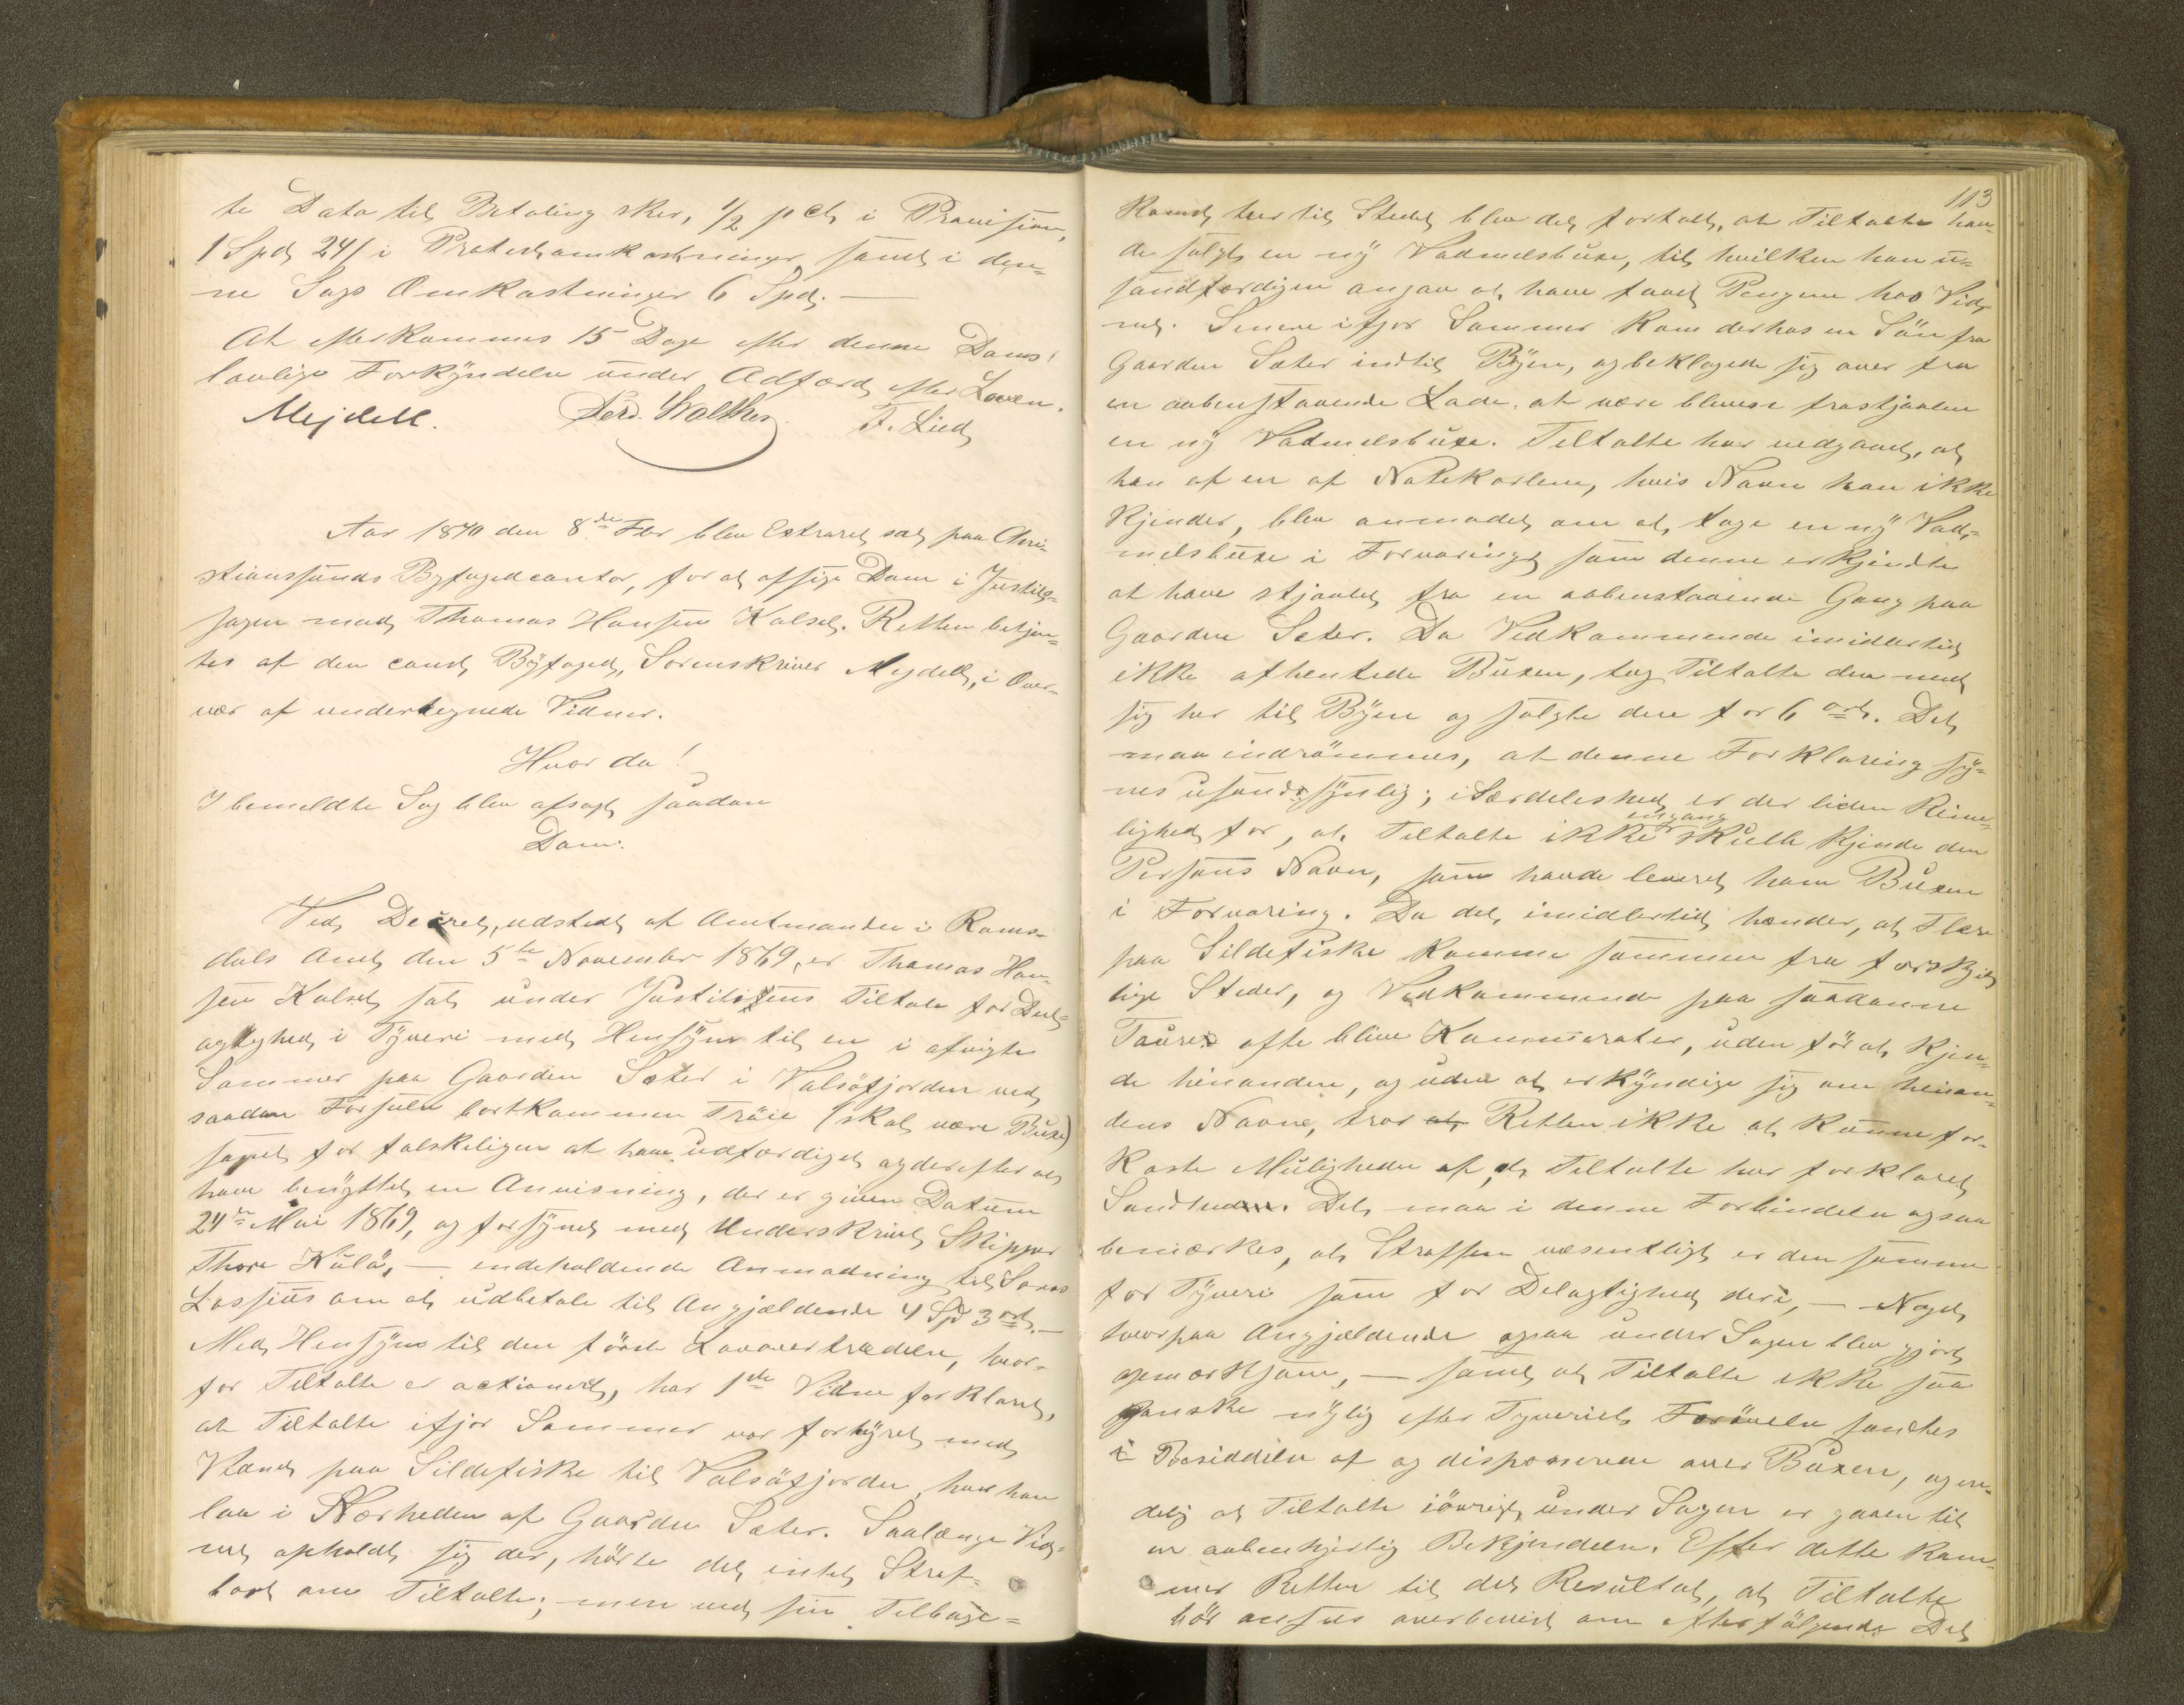 te Data til Betaling sker, 1/2 pCt i Provision,
1 Spd 24 s i Protestomkostninger samt i den-
ne Sags Omkostninger 6 Spd. —
At efterkommes 15 Dage efter denne Doms
lovlige Forkyndelse under Adfærd efter Loven.
Mejdell. Ferd. Walther F. Lied
Aar 1870 den 8de Fbr blev Extraret sat paa Chri-
stianssunds Byfogedcontor, for at afsige Dom i Justits-
sagen mod Thomas Hansen Kalset. Retten betjen-
tes af den const. Byfoged, Sorenskriver Mejdell, i Over-
vær af undertegnede Vidner.
Hvor da!
I bemeldte Sag blev afsagt saadan
Dom:
Ved Decret, udstedt af Amtmanden i Roms-
dals Amt den 5te November 1869, er Thomas Han-
sen Kalset sat under Justitiens Tiltale for Deel-
agtighed i Tyveri med Hensyn til en i afvigte
Sommer paa Gaarden Sæter i Valsöfjorden ved
saadan Forseelse bortkommen Tröie (skal være Buxe)
samt for falskeligen at have udfærdiget og derefter at
have benyttet en Anvisning, der er given Datum
24de Mai 1869, og forsynet med Underskrivt Skipper
Thore Kulö, — indeholdende Anmodning til Soren
Lossius om at udbetale til Angjældende 4 Spd 3 ort. —
Med Hensyn til den förste Lovovertrædelse, hvor-
for Tiltalte er actioneret, har 1ste Vidne forklaret,
at Tiltalte ifjor Sommer var forhyret med
Vidnet paa Sildefiske til Valsöfjorden, hvor han
laa i Nærheden af Gaarden Sæter. Saalænge Vid-
net opholdt sig der, hörte det intet Straf-
bart om Tiltalte; men ved sin Tilbage-
113
komst her til Stedet blev det fortalt, at Tiltalte hav-
de solgt en ny Vadmelsbuxe, til hvilken han u-
sandfærdigen angav at have faaet Pengene hos Vid-
net. Senere ifjor Sommer kom derhos en Sön fra
Gaarden Sæter indtil Byen, og beklagede sig over fra
en aabenstaaende Lade at være bleven frastjaalen
en ny Vadmelsbuxe. Tiltalte har vedgaaet, at
han af en af Notekarlene, hvis Navn han ikke
kjender, blev anmodet om at tage en ny Vad-
melsbuxe i Forvaring som denne erkjendte
at have stjaalet fra en aabenstaaende Gang paa
Gaarden Sæter. Da Vedkommende imidlertid
ikke afhentede Buxen, tog Tiltalte den med
sig her til Byen og solgte den for 6 ort. Det
maa indrömmes, at denne Forklaring sy-
nes usandsynlig; i Særdeleshed er der liden Rime-
lighed for, at Tiltalte ikke engang skulle kjende den
Persons Navn, som havde leveret ham Buxen
i Forvaring. Da det imidlertid hænder, at Flere
paa Sildefiske komme sammen fra forskjel-
lige Steder, og Vedkommende paa saadanne
Tourer ofte blive Kammerater, uden för at kjen-
de hinanden, og uden at erkyndige sig om hinan-
dens Navne, tror Retten ikke at kunne for-
kaste Muligheden af at Tiltalte har forklaret
Sandheden. Det maa i denne Forbindelse ogsaa
bemærkes, at Straffen væsentligt er den samme
for Tyveri som for Delagtighed deri, — Noget
hvorpaa Angjældende ogsaa under Sagen blev gjort
opmærksom, — samt at Tiltalte ikke saa
ganske nylig efter Tyveriets Forövelse fandtes
i Besiddelse af og disponerede over Buxen, og en-
delig at Tiltalte iövrigt under Sagen er gaaen til
en aabenhjertig Bekjendelse. Efter dette kom-
mer Retten til det Resultat, at Tiltalte
bör ansees overbevist om efterfölgende Del